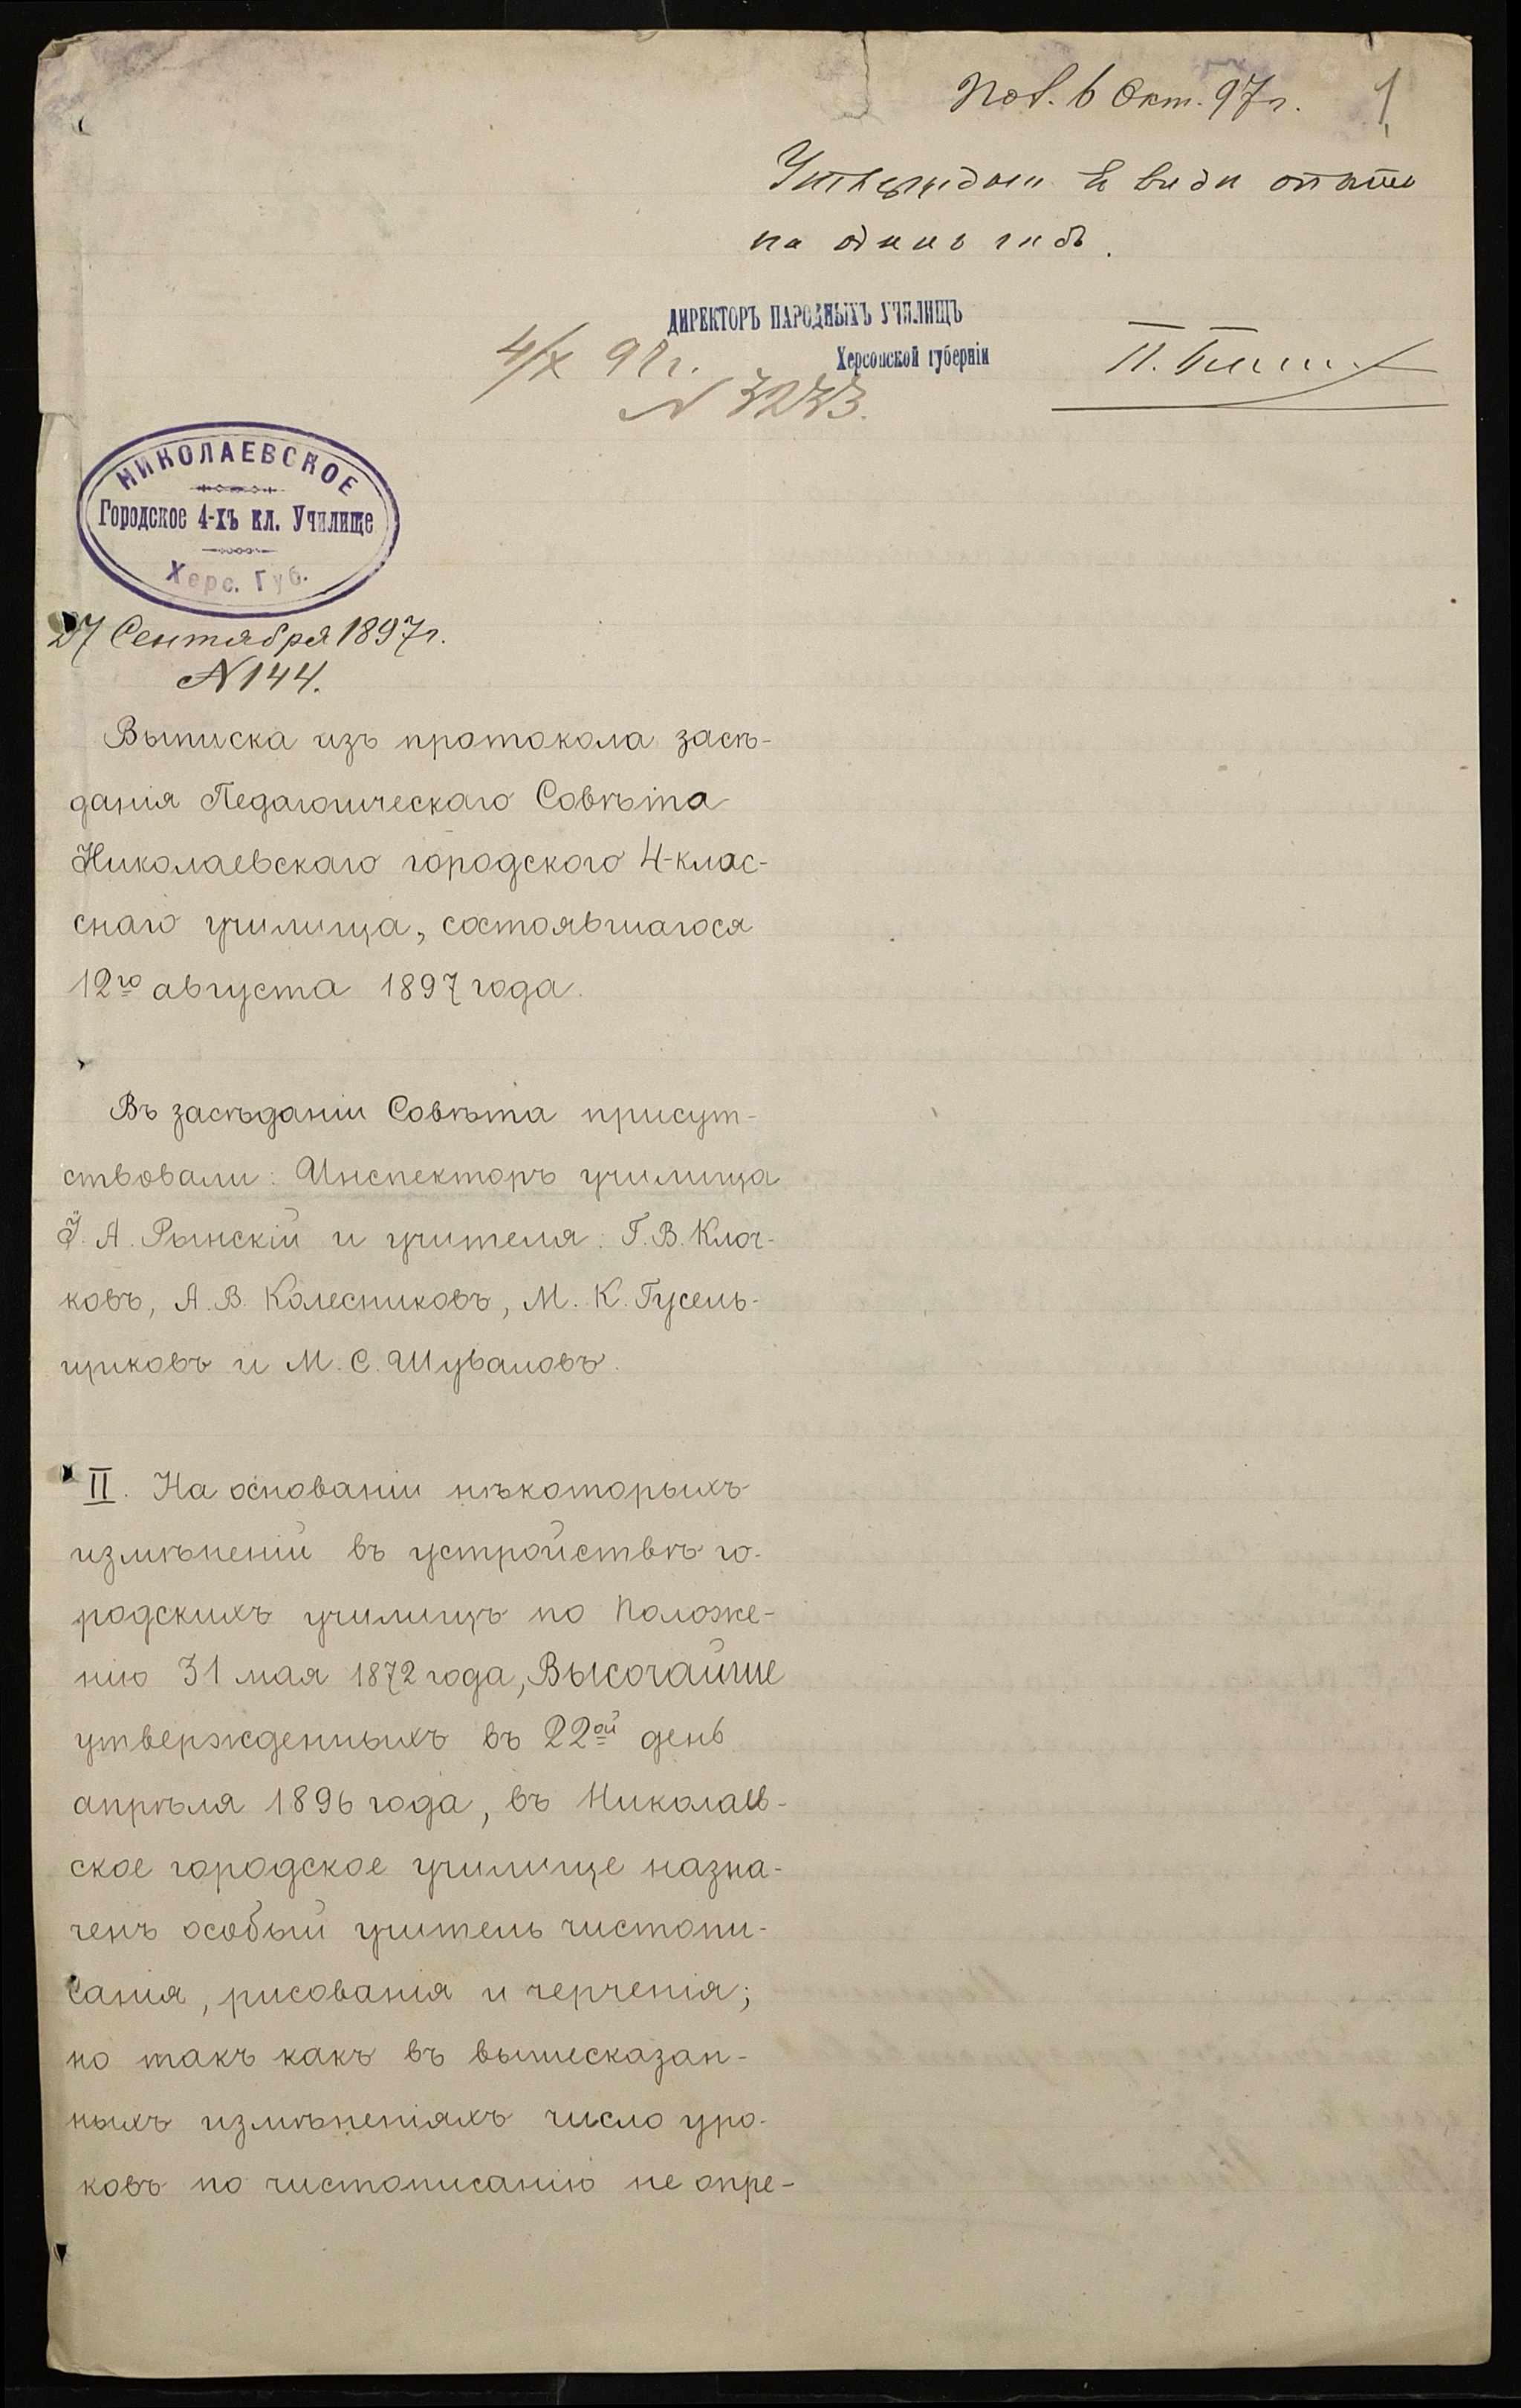 Пов. 6 Окт. 97 г. 1
Утверждаю въ видѣ опыта
на одинъ годъ.
ДИРЕКТОРЪ НАРОДНЫХЪ УЧИЛИЩЪ
Херсонской губерніи
4/X 97 г.
N 3233.
НИКОЛАЕВСКОЕ
Городское 4-хъ кл. Училище
Херс. Губ.
27 Сентября 1897 г.
N 144.
Выписка изъ протокола засѣ-
данія Педагогическаго Совѣта
Николаевскаго городского 4-клас-
снаго училища, состоявшагося
12го августа 1897 года.
Въ засѣданіи Совѣта присут-
ствовали: Инспекторъ училища
І. А. Рынскій и учителя: Г. В. Клоч-
ковъ, А. В. Колесниковъ, М. К. Гусель-
щиковъ и М. С. Шуваловъ.
II. На основаніи нѣкоторыхъ
измѣненій въ устройствѣ го-
родскихъ училищъ по Положе-
нію 31 мая 1872 года, Высочайше
утвержденныхъ въ 22ой день
апрѣля 1896 года, въ Николаев-
ское городское училище назна-
ченъ особый учитель чистопи-
санія, рисованія и черченія;
но такъ какъ въ вышесказан-
ныхъ измѣненіяхъ число уро-
ковъ по чистописанію не опре-